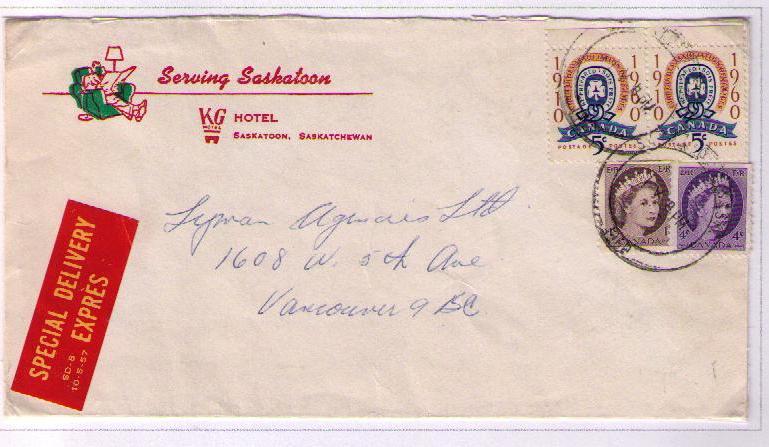 Serving Saskatoon
KG HOTEL
HOTEL
SASKATOON, SASKATCHEWAN
1910 1960
CANADA
POSTAGE 5¢ POSTES
1910 1960
CANADA
POSTAGE 5¢ POSTES
E II R
CANADA
E II R
CANADA 4¢
Lyman Agencies Ltd.
1608 W. 5th Ave
Vancouver 9 BC
SPECIAL DELIVERY
EXPRÈS
SD-8
10-5-57